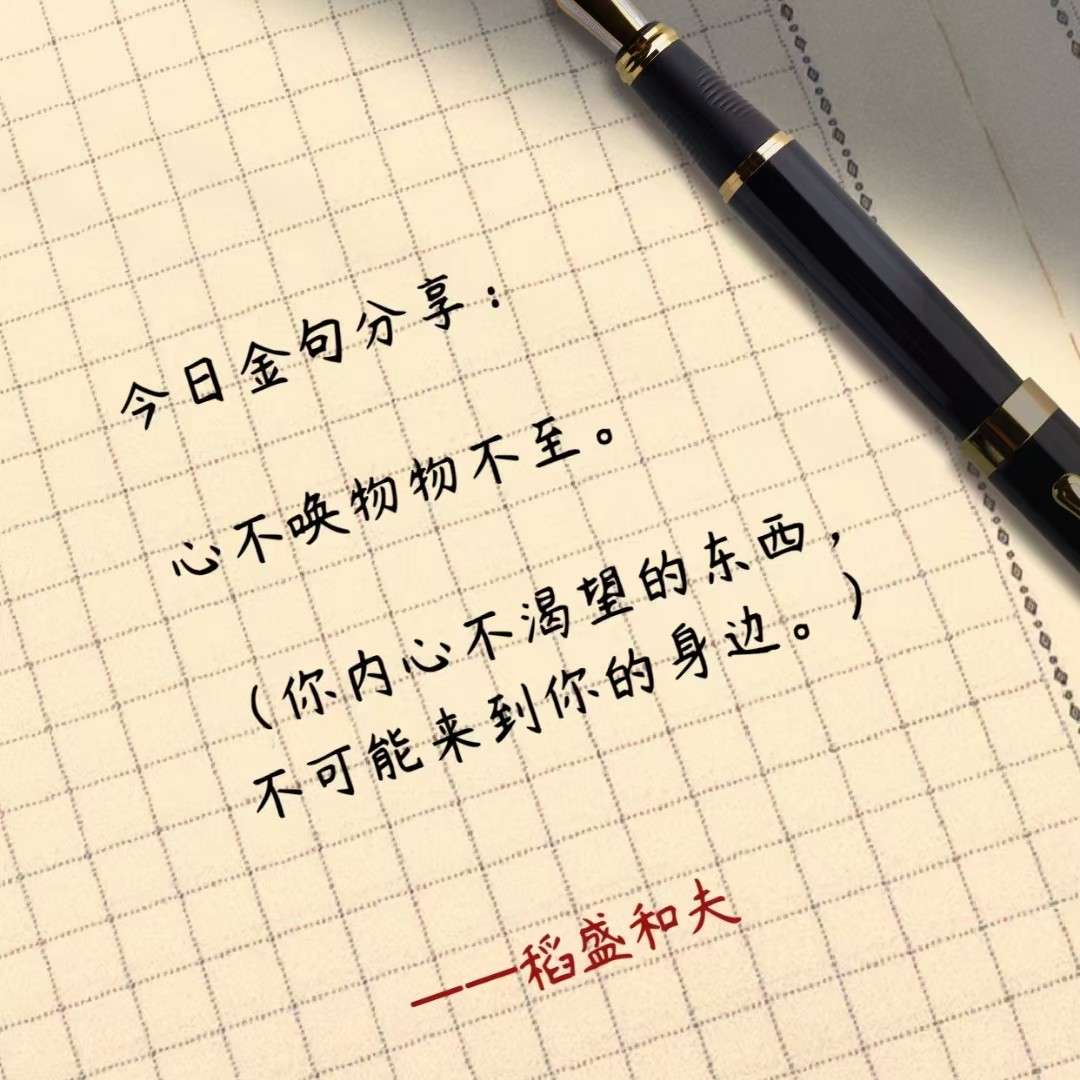 今日金句分享：
心不唤物物不至。
（你内心不渴望的东西，
不可能来到你的身边。）
——稻盛和夫